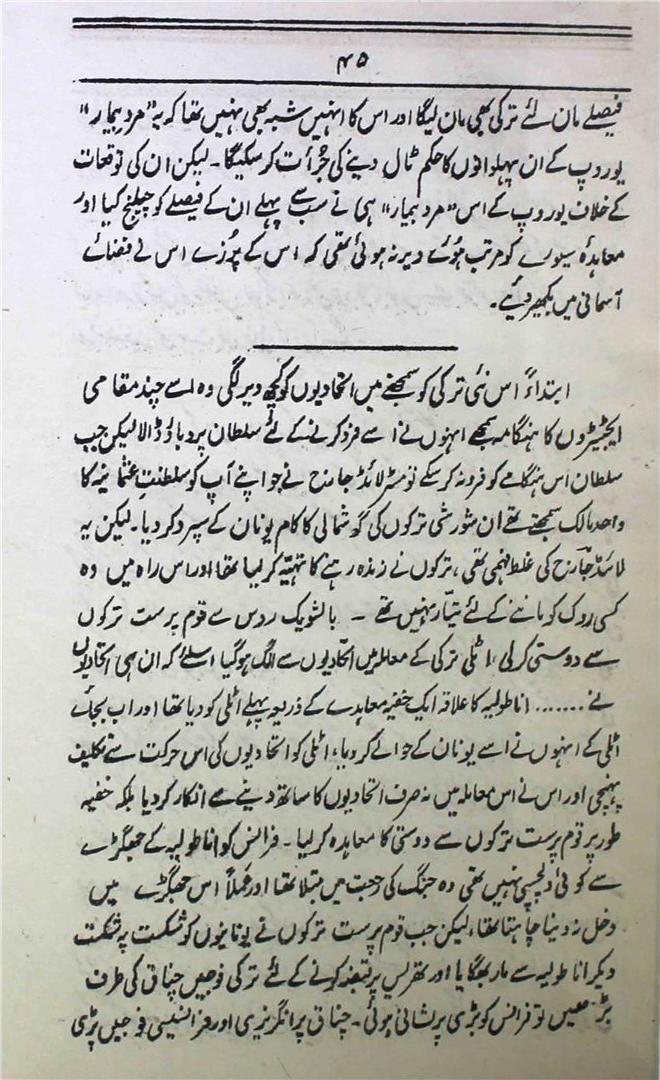 ۴۵
فیصلے مان لئے ترکی بھی مان لیگا اور اس کا انہیں شبہ بھی نہیں تھا کہ یہ "مرد بیمار"
یوروپ کے ان پہلوانوں کا حکم ٹال دینے کی جُرأت کر سکیگا۔ لیکن ان کی توقعات
کے خلاف یوروپ کے اس "مرد بیمار" ہی نے سب سے پہلے ان کے فیصلے کو چیلنج کیا اور
معاہدۂ سیورے کو مرتب ہوئے دیر نہ ہوئی تھی کہ اس کے پُرزے اس نے فضائے
آسمانی میں بکھیر دیئے۔
ابتداءً اس نئی ترکی کو سمجھنے میں اتحادیوں کو کچھ دیر لگی وہ اسے چند مقامی
ایجیٹیٹروں کا ہنگامہ سمجھے انہوں نے اسے فرو کرنے کے لئے سلطان پر دباؤ ڈالا لیکن جب
سلطان اس ہنگامے کو فرو نہ کر سکے تو مسٹر لائڈ جارج نے جو اپنے آپ کو سلطنتِ عثمانیہ کا
واحد مالک سمجھتے تھے ان شورشی ترکوں کی گوشمالی کا کام یونان کے سپرد کر دیا۔ لیکن یہ
لائڈ جارج کی غلط فہمی تھی، ترکوں نے زندہ رہنے کا تہیّہ کر لیا تھا اور اس راہ میں وہ
کسی روک کو ماننے کے لئے تیار نہیں تھے ۔ بالشویک روس سے قوم پرست ترکوں
سے دوستی کر لی، اٹلی ترکی کے معاملہ میں اتحادیوں سے الگ ہو گیا اسلئے کہ ان ہی اتحادیوں
نے ....... اناطولیہ کا علاقہ ایک خفیہ معاہدے کے ذریعہ پہلے اٹلی کو دیا تھا اور اب بجائے
اٹلی کے انہوں نے اسے یونان کے حوالے کر دیا، اٹلی کو اتحادیوں کی اس حرکت سے تکلیف
پہنچی اور اس نے اس معاملہ میں نہ صرف اتحادیوں کا ساتھ دینے سے انکار کر دیا بلکہ خفیہ
طور پر قوم پرست ترکوں سے دوستی کا معاہدہ کر لیا۔ فرانس کو اناطولیہ کے جھگڑے
سے کوئی دلچسپی نہیں تھی وہ جنگ کی رجعت میں مبتلا تھا اور عملاً اس جھگڑے میں
دخل نہ دینا چاہتا تھا، لیکن جب قوم پرست ترکوں نے یونانیوں کو شکست پہ شکست
دیکر اناطولیہ سے مار بھگایا اور تھریس پر قبضہ کرنے کے لئے ترکی فوجیں چناق کی طرف
بڑھیں تو فرانس کو بڑی پریشانی ہوئی۔ چناق پر انگریزی اور فرانسیسی فوجیں پڑی